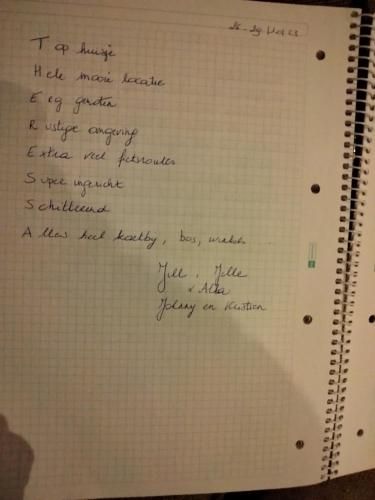 T op huisje
H ele mooie locatie
E cg genoten
R ustige omgeving
E xtra veel fietsroutes
S uper ingericht
S chitterend
A lles heel dichtbij, bos, winkels
Jill, Jelle
& Alba
Johnny en Kristien